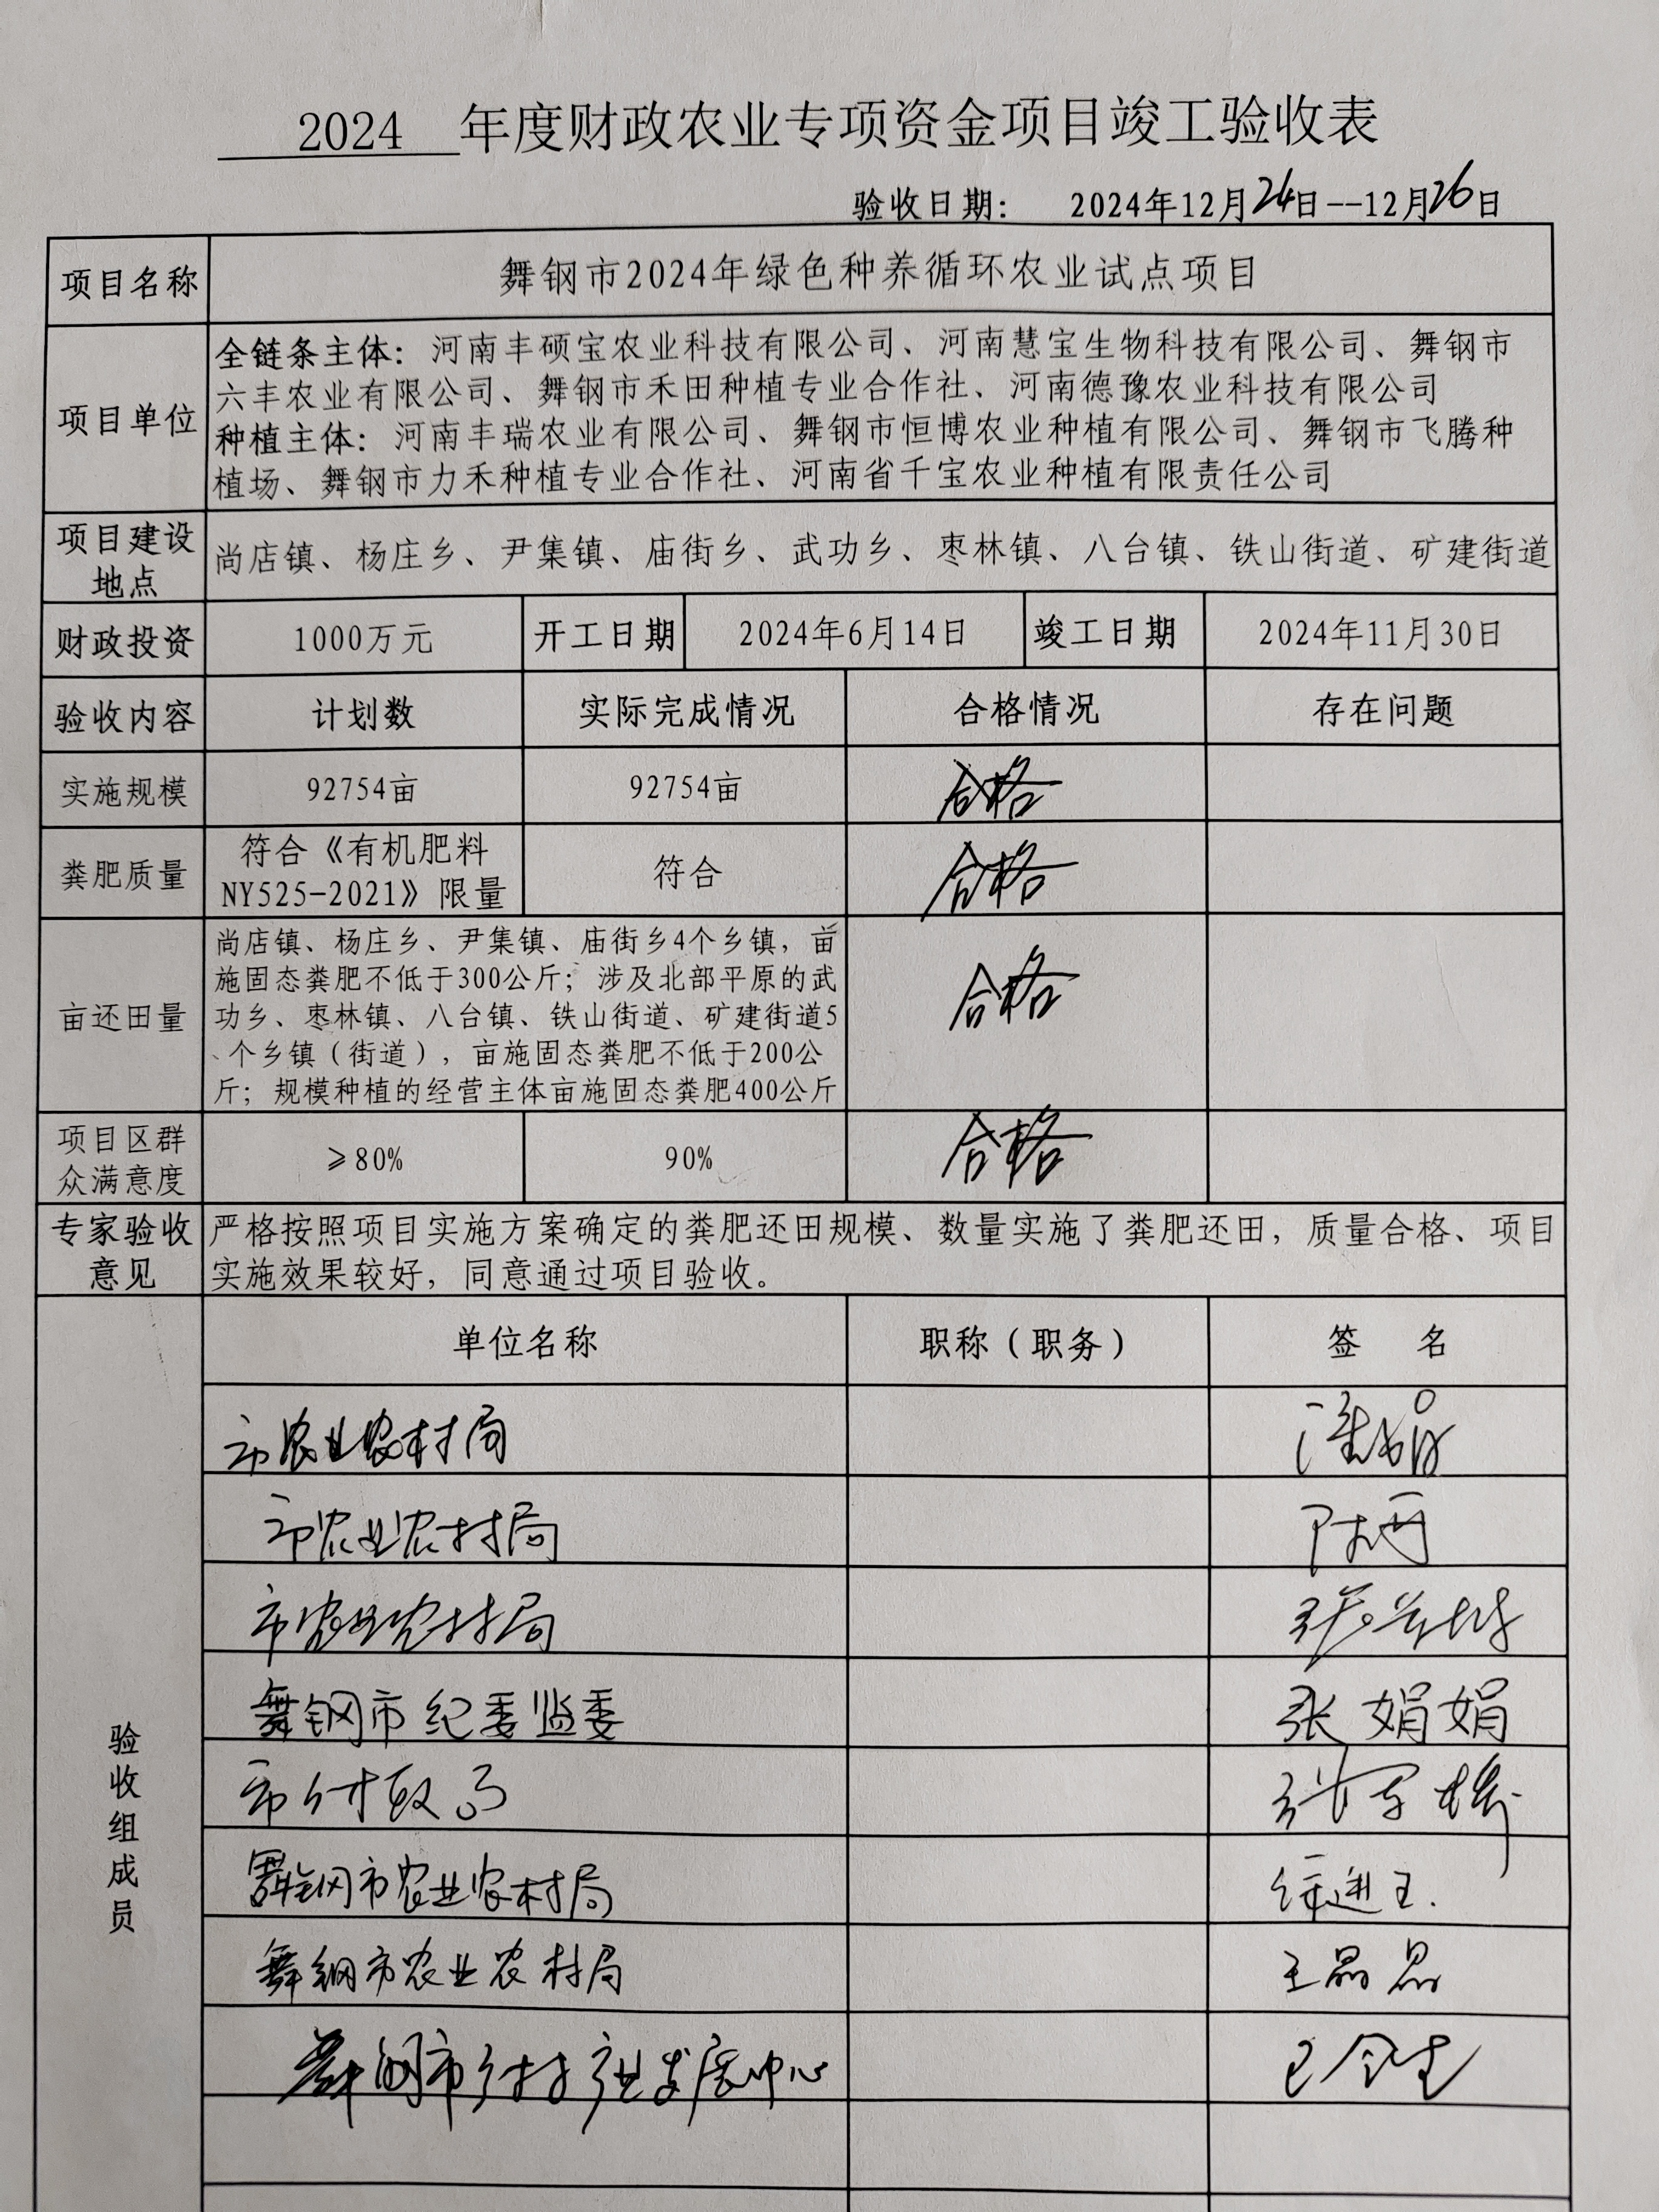 2024 年度财政农业专项资金项目竣工验收表
验收日期: 2024年12月24日--12月26日
项目名称 舞钢市2024年绿色种养循环农业试点项目
全链条主体:河南丰硕宝农业科技有限公司、河南慧宝生物科技有限公司、舞钢市
六丰农业有限公司、舞钢市禾田种植专业合作社、河南德豫农业科技有限公司
项目单位
种植主体:河南丰瑞农业有限公司、舞钢市恒博农业种植有限公司、舞钢市飞腾种
植场、舞钢市力禾种植专业合作社、河南省千宝农业种植有限责任公司
项目建设
地点
尚店镇、杨庄乡、尹集镇、庙街乡、武功乡、枣林镇、八台镇、铁山街道、矿建街道
财政投资 1000万元 开工日期 2024年6月14日 竣工日期 2024年11月30日
验收内容 计划数 实际完成情况 合格情况 存在问题
实施规模 92754亩 92754亩 合格
粪肥质量
符合《有机肥料
NY525-2021》限量
符合 合格
亩还田量
尚店镇、杨庄乡、尹集镇、庙街乡4个乡镇，亩
施固态粪肥不低于300公斤；涉及北部平原的武
功乡、枣林镇、八台镇、铁山街道、矿建街道5
个乡镇（街道），亩施固态粪肥不低于200公
斤；规模种植的经营主体亩施固态粪肥400公斤
合格
项目区群
众满意度
≥80% 90% 合格
专家验收
意见
严格按照项目实施方案确定的粪肥还田规模、数量实施了粪肥还田，质量合格、项目
实施效果较好，同意通过项目验收。
验收组成员
单位名称 职称（职务） 签 名
市农业农村局
市农业农村局
市农业农村局
舞钢市纪委监委 张娟娟
市财政局
舞钢市农业农村局
舞钢市农业农村局 王晶晶
舞钢市乡村产业发展中心